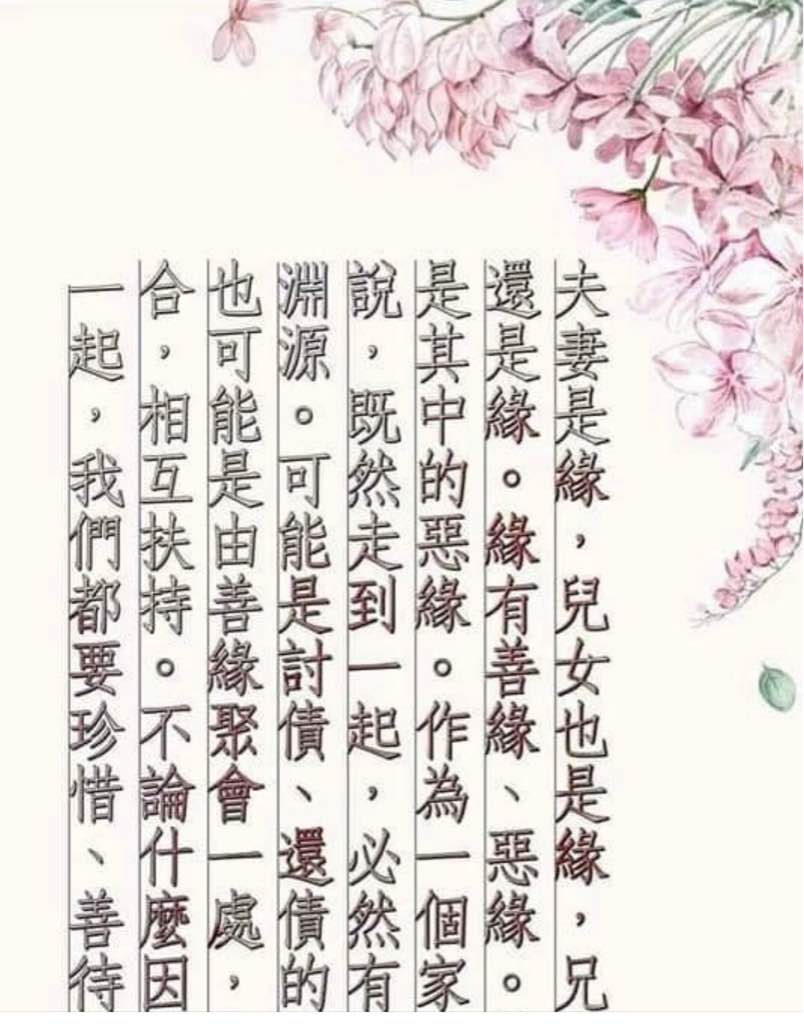 夫妻是緣，兒女也是緣，兄
還是緣。緣有善緣、惡緣。
是其中的惡緣。作為一個家
說，既然走到一起，必然有
淵源。可能是討債、還債的
也可能是由善緣聚會一處，
合，相互扶持。不論什麼因
一起，我們都要珍惜、善待